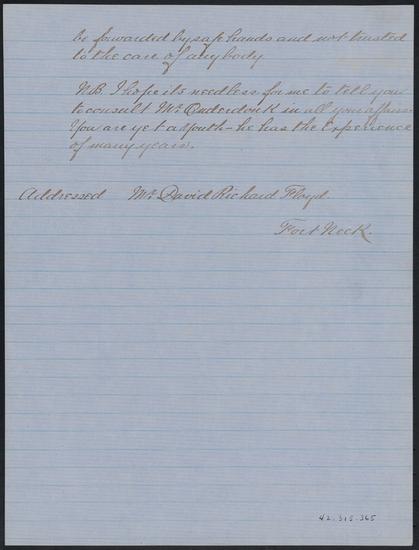 be forwarded by safe hands and not trusted
to the care of anybody
N.B. I hope its needless for me to tell you
to consult Mr Onderdonk in all your affairs
You are yet a youth - he has the experience
of many years.
Addressed Mr David Richard Floyd.
Fort Neck.
42.315.365